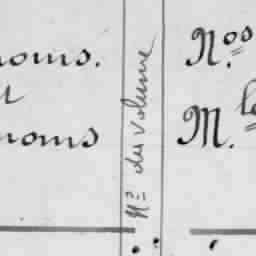 noms.
noms
Nº du volume
Nos.
M. le